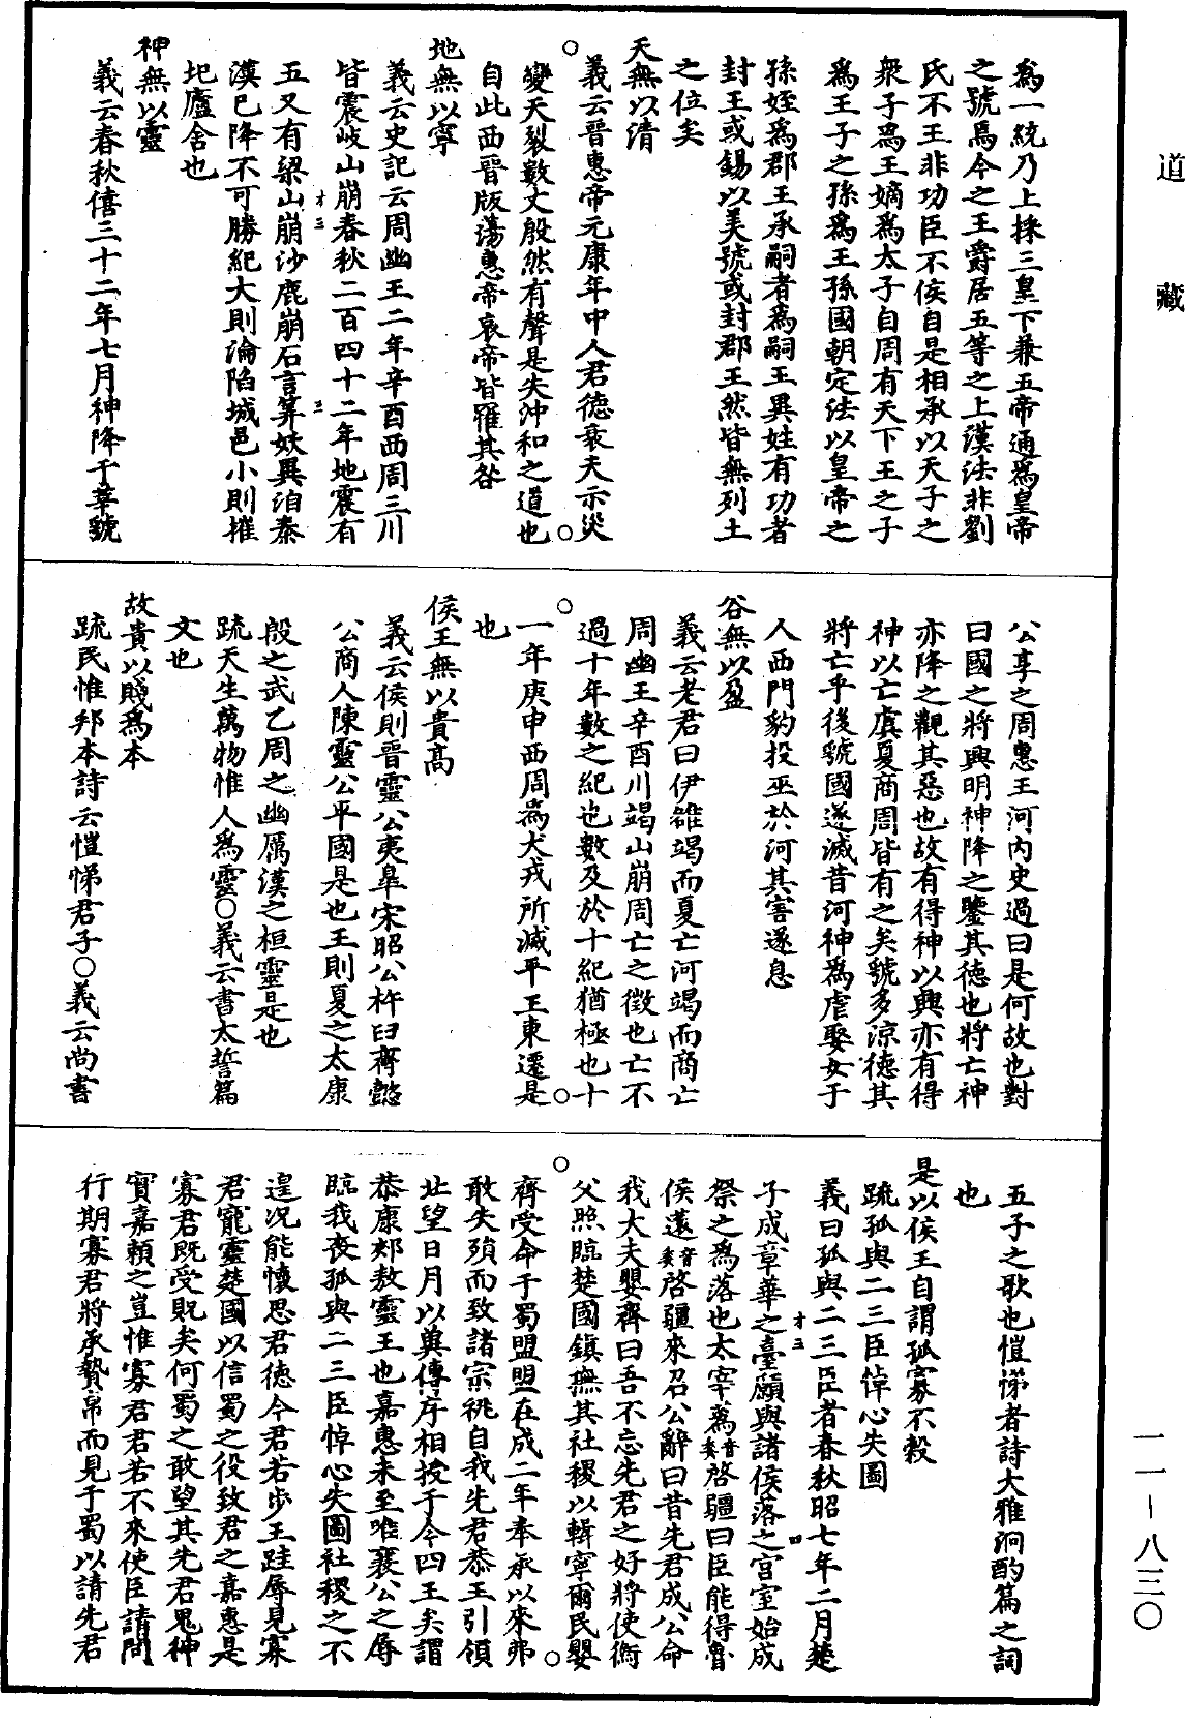 道藏
爲一統乃上採三皇下兼五帝通爲皇帝
之號焉今之王爵居五等之上漢法非劉
氏不王非功臣不侯自是相承以天子之
衆子爲王嫡爲太子自周有天下王之子
爲王子之孫爲王孫國朝定法以皇帝之
孫姪爲郡王承嗣者爲嗣王異姓有功者
封王或錫以美號或封郡王然皆無列土
之位矣
天無以清
義云晉惠帝元康年中人君德衰天示災
變天裂數丈殷然有聲是失沖和之道也
自此西晉版蕩惠帝哀帝皆罹其咎
地無以寧
義云史記云周幽王二年辛酉西周三川
皆震岐山崩春秋二百四十二年地震有
五又有梁山崩沙鹿崩石言筭妖異洎秦
漢已降不可勝紀大則淪陷城邑小則摧
圯廬舍也
神無以靈
義云春秋僖三十二年七月神降于莘虢
公享之周惠王河內史過曰是何故也對
曰國之將興明神降之鑒其德也將亡神
亦降之觀其惡也故有得神以興亦有得
神以亡虞夏商周皆有之矣虢多涼德其
將亡乎後虢國遂滅昔河神爲虐娶女于
人西門豹投巫於河其害遂息
谷無以盈
義云老君曰伊雒竭而夏亡河竭而商亡
周幽王辛酉川竭山崩周亡之徵也亡不
過十年數之紀也數及於十紀猶極也十
一年庚申西周爲犬戎所滅平王東遷是
也
侯王無以貴高
義云侯則晉靈公夷皐宋昭公杵臼齊懿
公商人陳靈公平國是也王則夏之太康
殷之武乙周之幽厲漢之桓靈是也
疏天生萬物惟人爲靈○義云書太誓篇
文也
故貴以賤爲本
疏民惟邦本詩云愷悌君子○義云尚書
五子之歌也愷悌者詩大雅泂酌篇之詞
也
是以侯王自謂孤寡不穀
疏孤與二三臣悼心失圖
義曰孤與二三臣者春秋昭七年二月楚
子成章華之臺願與諸侯落之宮室始成
祭之爲落也太宰薳音委啓疆曰臣能得魯
侯薳音委啓疆來召公辭曰昔先君成公命
我大夫嬰齊曰吾不忘先君之好將使衡
父照臨楚國鎮撫其社稷以輯寧爾民嬰
齊受命于蜀盟盟在成二年奉承以來弗
敢失殞而致諸宗祧自我先君恭王引領
北望日月以冀傳序相授于今四王矣謂
恭康郟敖靈王也嘉惠未至唯襄公之辱
臨我喪孤與二三臣悼心失圖社稷之不
遑況能懷思君德今君若步王趾辱見寡
君寵靈楚國以信蜀之役致君之嘉惠是
寡君既受貺矣何蜀之敢望其先君鬼神
實嘉賴之豈惟寡君君若不來使臣請問
行期寡君將承贄帛而見于蜀以請先君
一一－八三〇